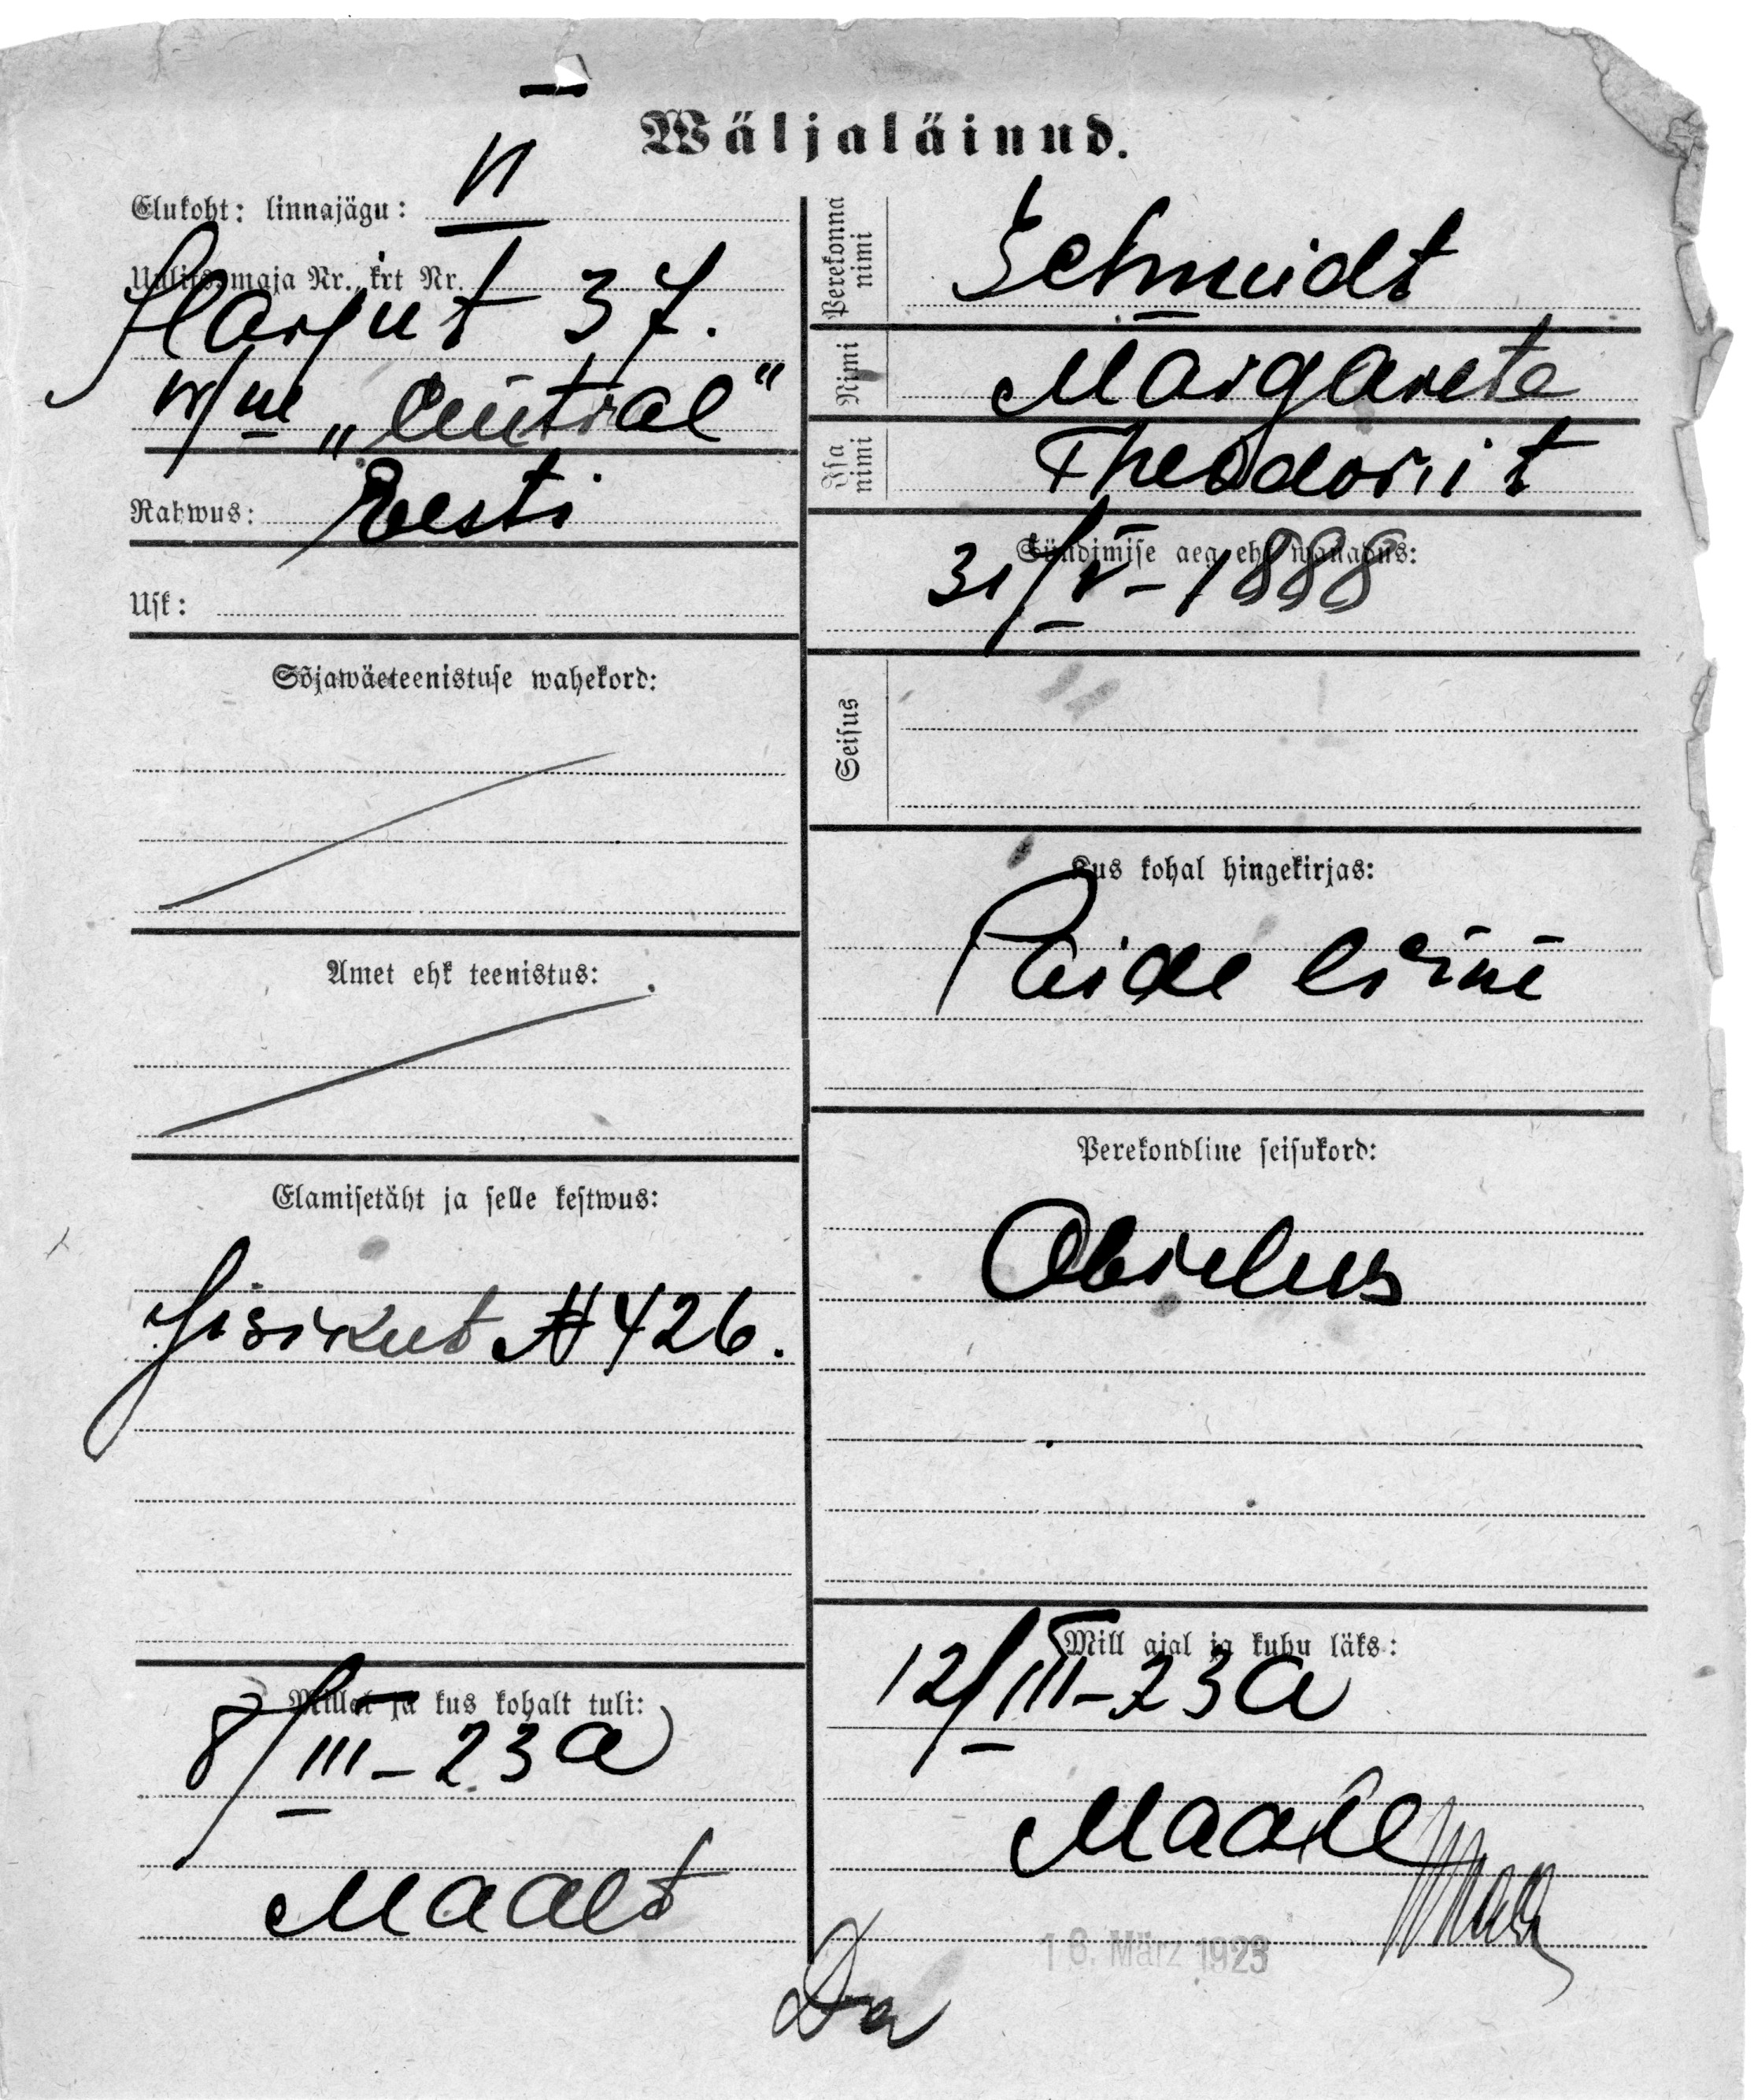 Wäljaläinud.
Elukoht: linnajägu: VI
Uulits, maja Nr., krt Nr.
Harjut 37.
w/m „Central“
Rahwus: Eesti
Usk:
Sõjawäeteenistuse wahekord:
Amet ehk teenistus:
Elamisetäht ja selle kestwus:
Isikut № 426.
Millal ja kus kohalt tuli:
8/III – 23 a
Maalt
Perekonna nimi
Schmidt
Nimi
Margarete
Isa nimi
Theodorit
Sündimise aeg ehk wanadus:
31/V – 1888
Seisus
Kus kohal hingekirjas:
Paide
Perekondline seisukord:
Abielus
Mill ajal ja kuhu läks:
12/III – 23 a
Maale
16. März 1923